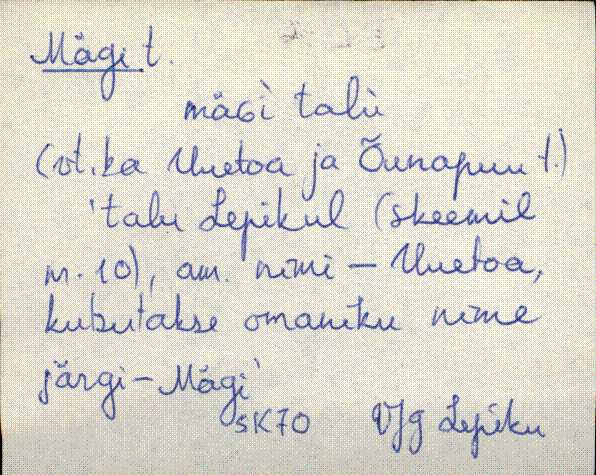 Mägi t.
mäGì talù
(vt. ka Uuetoa ja Õunapuu t.)
'talu Lepikul (skeemil
nr. 10), am. nimi – Uuetoa,
kutsutakse omaniku nime
järgi – Mägi'
SK70 VJg Lepiku